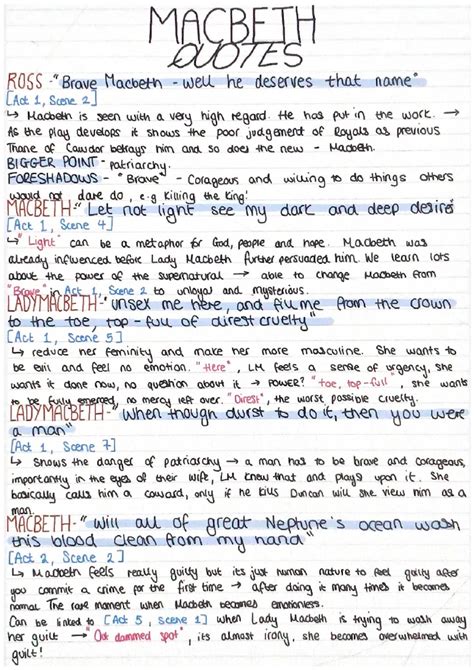 MACBETH
QUOTES
ROSS - "Brave Macbeth - well he deserves that name"
[Act 1, Scene 2]
↳ Macbeth is seen with a very high regard. He has put in the work. →
As the play develops it shows the poor judgement of Royals as previous
Thane of Cawdor betrays him and so does the new - Macbeth.
BIGGER POINT - patriarchy.
FORESHADOWS - "Brave" - Corageous and willing to do things others
would not dare do, e.g killing the King!
MACBETH - "Let not light see my dark and deep desires"
[Act 1, Scene 4]
↳ "Light" can be a metaphor for God, people and hope. Macbeth was
already influenced before Lady Macbeth further persuaded him. We learn lots
about the power of the supernatural → able to change Macbeth from
"Brave" in Act 1, Scene 2 to unloyal and mysterious.
LADYMACBETH - "unsex me here, and fill me from the crown
to the toe, top-full of direst cruelty"
[Act 1, Scene 5]
↳ reduce her feminity and make her more masculine. She wants to
be evil and feel no emotion. "Here", LM feels a sense of urgency, she
wants it done now, no question about it → POWER? "toe, top-full", she wants
to be fully, no mercy left over. "Direst", the worst possible cruelty.
LADYMACBETH - "When though durst to do it, then you were
a man"
[Act 1, Scene 7]
↳ Shows the danger of patriarchy → a man has to be brave and corageous,
importantly in the eyes of their wife, LM knew that and plays upon it. She
basically calls him a coward, only if he kills Duncan will she view him as a
man.
MACBETH - "Will all of great Neptune's ocean wash
this blood clean from my hand"
[Act 2, Scene 2]
↳ Macbeth feels really guilty but its just human nature to feel guilty after
you commit a crime for the first time → after doing it many times it becomes
normal The rare moment when Macbeth becomes emotionless.
Can be linked to [Act 5, scene 1] when Lady Macbeth is trying to wash away
her guilt → "Out damned spot", its almost irony, she becomes overwhelmed with
guilt!